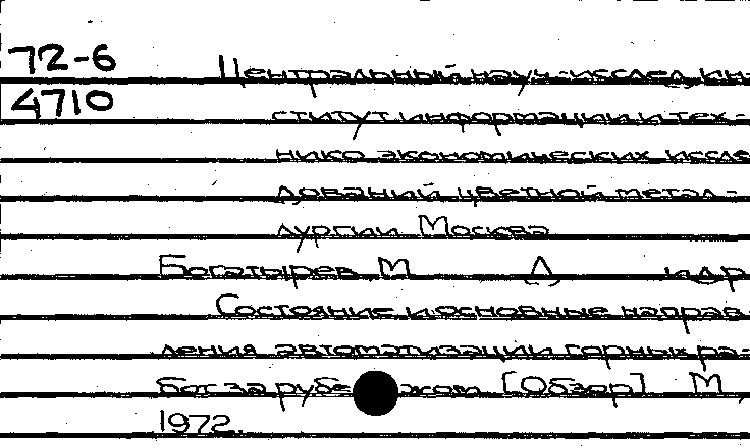 72-6 Центральный науч.-исслед. ин-
4710 ститут информации и тех-
нико экономических иссле
дований цветной метал-
лургии Москва
Богатырев М Д и др
Состояние и основные направ
ления автоматизации горных ра-
бот за рубежом [Обзор] М,
1972.